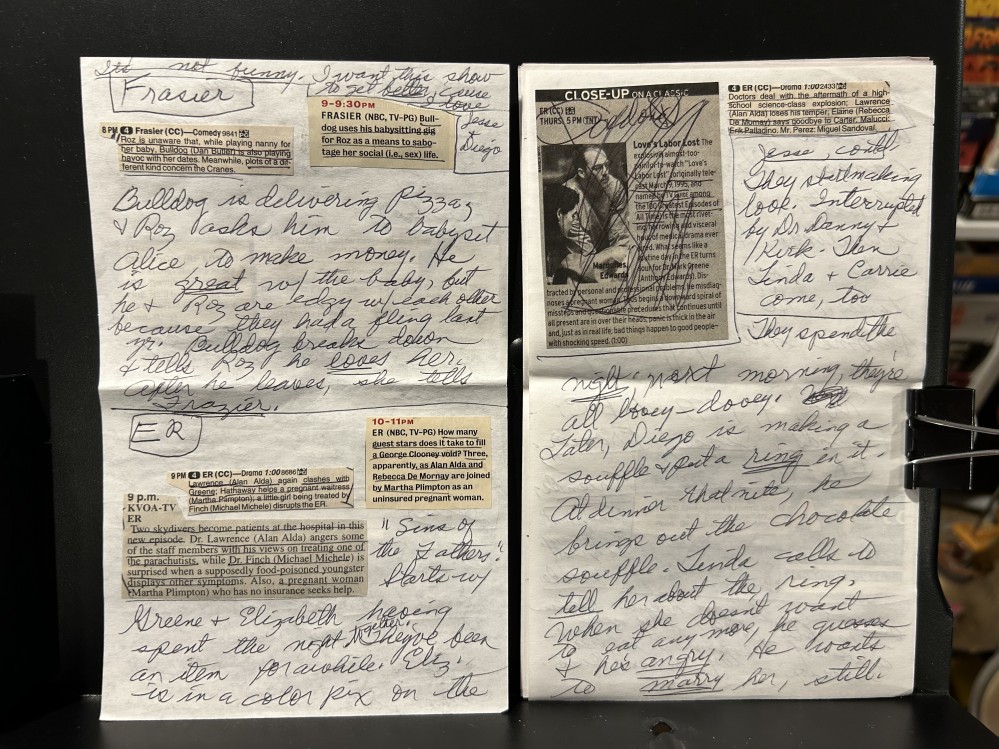 Its not funny. I want this show
to get better, cause
I love
Jesse
& Diego
Frasier
8 PM 4 Frasier (CC)—Comedy 9841
Roz is unaware that, while playing nanny for
her baby, Bulldog (Dan Butler) is also playing
havoc with her dates. Meanwhile, plots of a dif-
ferent kind concern the Cranes.
9-9:30PM
FRASIER (NBC, TV-PG) Bull-
dog uses his babysitting gig
for Roz as a means to sabo-
tage her social (i.e., sex) life.
Bulldog is delivering pizzaz
& Roz asks him to babysit
Alice to make money. He
is great w/ the baby, but
he & Roz are edgy w/ each other
because they had a fling last
yr. Bulldog breaks down
& tells Roz he loves her.
After he leaves, she tells
Frazier.
ER
9 PM 4 ER (CC)—Drama 1:00 8686
Lawrence (Alan Alda) again clashes with
Greene; Hathaway helps a pregnant waitress
(Martha Plimpton); a little girl being treated by
Finch (Michael Michele) disrupts the ER.
10-11PM
ER (NBC, TV-PG) How many
guest stars does it take to fill
a George Clooney void? Three,
apparently, as Alan Alda and
Rebecca De Mornay are joined
by Martha Plimpton as an
uninsured pregnant woman.
9 p.m.
KVOA-TV
ER
Two skydivers become patients at the hospital in this
new episode. Dr. Lawrence (Alan Alda) angers some
of the staff members with his views on treating one of
the parachutists, while Dr. Finch (Michael Michele) is
surprised when a supposedly food-poisoned youngster
displays other symptoms. Also, a pregnant woman
(Martha Plimpton) who has no insurance seeks help.
"Sins of
the Fathers"
Starts w/
Greene & Elizabeth having
spent the night together. They've been
an item for awhile. Eliz.
is in a color pix on the
CLOSE-UP ON A CLASSIC
ER (CC)
THURS, 5 PM (TNT)
Love's Labor Lost The
explosive, almost-too-
painful-to-watch "Love's
Labor Lost" (originally tele-
cast March 9, 1995, and
named by TV GUIDE among
the 100 Greatest Episodes of
All Time) is the most rivet-
ing, harrowing and visceral
hour of medical drama ever
aired. What seems like a
routine day in the ER turns
sour for Dr. Mark Greene
(Anthony Edwards). Dis-
tracted by personal and professional problems, he misdiag-
noses a pregnant woman. Thus begins a downward spiral of
missteps and questionable procedures that continues until
all present are in over their heads; panic is thick in the air
and, just as in real life, bad things happen to good people—
with shocking speed. (1:00)
Edwards
4 ER (CC)—Drama 1:00 2433
Doctors deal with the aftermath of a high-
school science-class explosion; Lawrence
(Alan Alda) loses his temper; Elaine (Rebecca
De Mornay) says goodbye to Carter. Malucci:
Erik Palladino. Mr. Perez: Miguel Sandoval.
Jesse, cont'd
They start making
love. Interrupted
by Dr. Danny &
Kirk. Then
Linda & Carrie
come, too
They spend the
night, next morning, they're
all lovey-dovey.
Later, Diego is making a
souffle & put a ring in it.
At dinner that nite, he
brings out the chocolate
souffle. Linda calls to
tell her about the ring.
When she doesn't want
to eat any more, he guesses
& he's angry. He wants
to marry her, still.